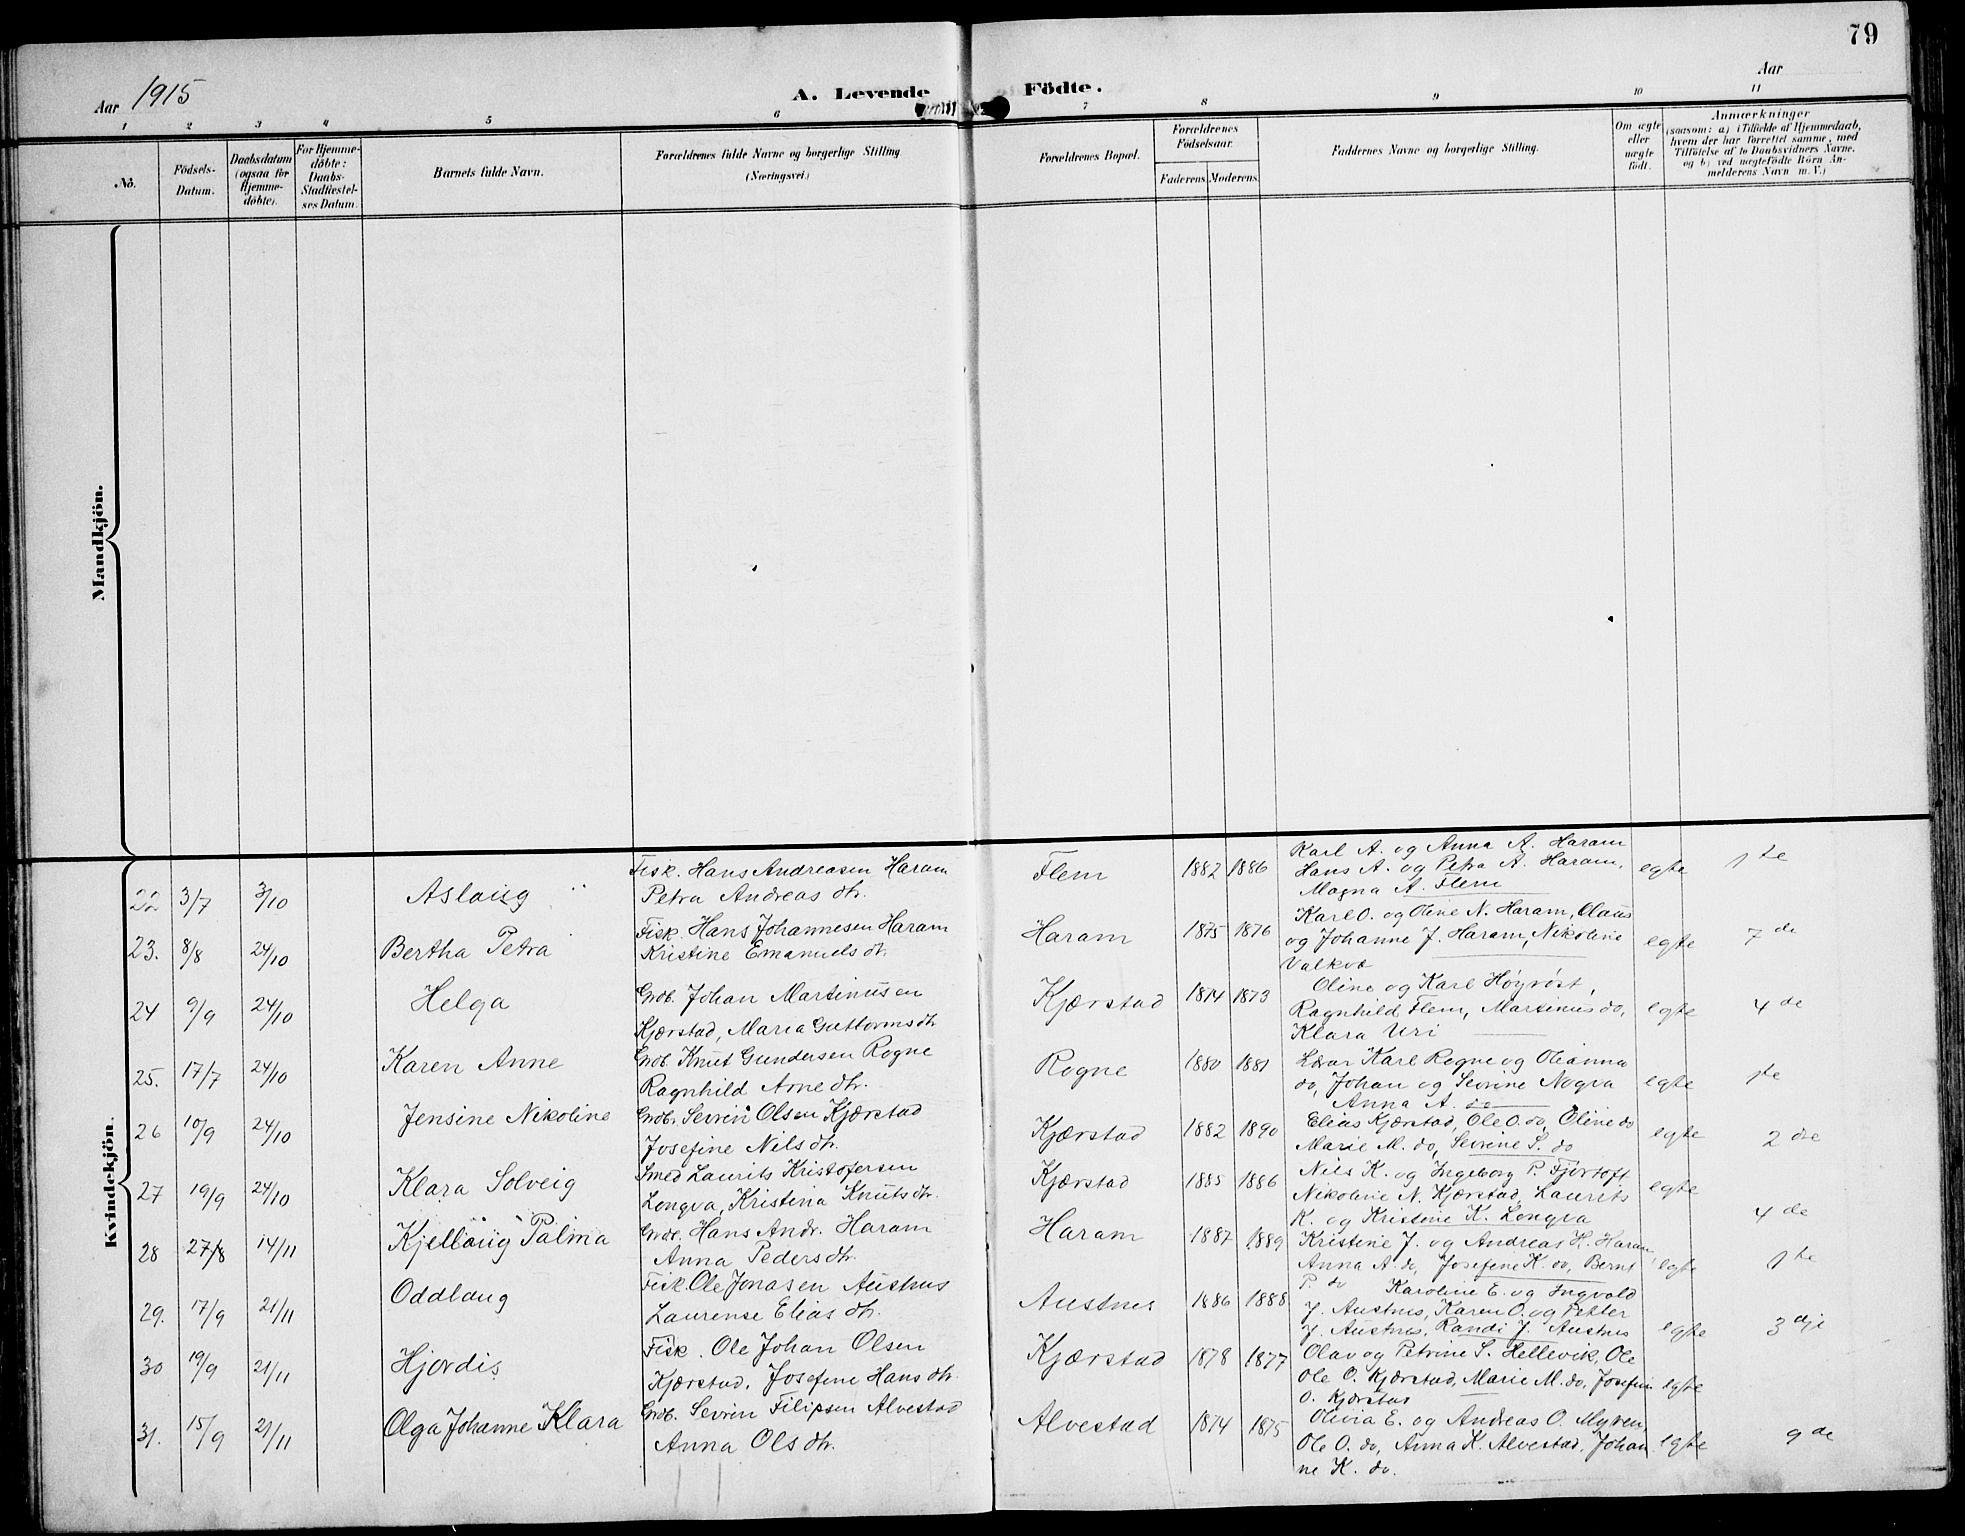 79
Aar 1915
A. Levende Födte.
Aar
1 2 3 4 5 6 7 8 9 10 11
No.
Födsels-
Datum.
Daabsdatum
(ogsaa for
Hjemme-
døbte).
For Hjemme-
døbte:
Daabs-
Stadfæstel-
ses Datum.
Barnets fulde Navn.
Forældrenes fulde Navne og borgerlige Stilling
(Næringsvei.)
Forældrenes Bopæl.
Forældrenes
Födselsaar.
Faderens. Moderens.
Faddernes Navne og borgerlige Stilling.
Om ægte
eller
uægte
födt.
Anmærkninger
(saasom: a) i Tilfælde af Hjemmedaab,
hvem der har forrettet samme, med
Tilföielse af to Daabsvidners Navne,
og b) ved uægtefödte Börn An-
melderens Navn m. V.)
Mandkjön.
Kvindekjön.
22 3/7 3/10 Aslaug
Fisk. Hans Andreasen Haram
Petra Andreas dtr.
Flem 1882 1886
Karl A. og Anna A. Haram
Hans A. og Petra A. Haram,
Magna A. Flem
egte 1te
23. 8/8 24/10 Bertha Petra
Fisk. Hans Johannesen Haram
Kristine Emanuels dtr.
Haram 1875 1876
Karl O. og Oline N. Haram, Claus
og Johanne J. Haram, Nikoline
Valkvæ
egte 7de
24 9/9 24/10 Helga
Grdb. Johan Martinusen
Kjærstad, Maria Guttorms dtr.
Kjærstad 1874 1873
Oline og Karl Høyrøst,
Ragnhild Flem, Martinus do,
Klara Uri
egte 4de
25. 17/7 24/10 Karen Anne
Grdb. Knut Gundersen Rogne
Ragnhild Arne dtr.
Rogne 1880 1881
Lærer Karl Rogne og Oleanna
do, Johan og Sevrine Nogva
Anna A. do
egte 1te
26 10/9 24/10 Jensine Nikoline
Grdb. Sevrin Olsen Kjærstad
Josefine Nils dtr.
Kjærstad 1882 1890
Elias Kjærstad, Ole O. do, Oline do
Marie M. do, Sevrine S. do
egte 2de
27 19/9 24/10 Klara Solveig
Smed Laurits Kristofersen
Longva, Kristina Knuts dtr.
Kjærstad 1885 1886
Nils K. og Ingeborg P. Fjørtoft
Nikoline N. Kjærstad, Laurits
K. og Kristine K. Longva
egte 4de
28 27/8 14/11 Kjellaug Palma
Grdb. Hans Andr. Haram
Anna Peders dtr.
Haram 1887 1889
Kristine J. og Andreas H. Haram
Anna A. do, Josefine K. do, Bernt
P. do
egte 1te
29. 17/9 21/11 Oddlaug
Fisk. Ole Jonasen Austnes
Laurense Elias dtr.
Austnes 1886 1888
Karoline E. og Ingvald
J. Austnes, Karen O. og Petter
J. Austnes, Randi J. Austnes
egte 3dje
30 19/9 21/11 Hjørdis
Fisk. Ole Johan Olsen
Kjærstad, Josefine Hans dtr.
Kjærstad 1878 1877
Olav og Petrine S. Hellevik, Ole
Ole O. Kjærstad, Marie M. do, Josefine
O. Kjærstad
egte
31. 15/9 21/11 Olga Johanne Klara
Grdb. Sevrin Filipsen Alvestad
Anna Ols dtr.
Alvestad 1874 1875
Olivia E. og Andreas O. Myren,
Ole O. do, Anna K. Alvestad, Johan
ne K. do.
egte 9de